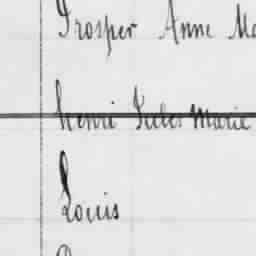 Prosper Anne Ma
Henri Jules Marie
Louis